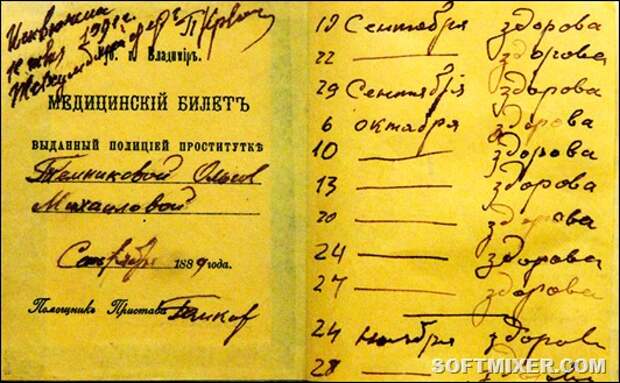 1991 г.
г. Владимiръ.
МЕДИЦИНСКIЙ БИЛЕТЪ
ВЫДАННЫЙ ПОЛИЦIЕЙ ПРОСТИТУТКѢ
Темниковой
Михаиловой
Сентября 1889 года.
Помощникъ Пристава
19 Сентября здорова
22 — здорова
29 Сентября здорова
6 октября здорова
10 — здорова
13 — здорова
20 — здорова
24 — здорова
27 — здорова
24 ноября здорова
28 — здорова
SOFTMIXER.COM